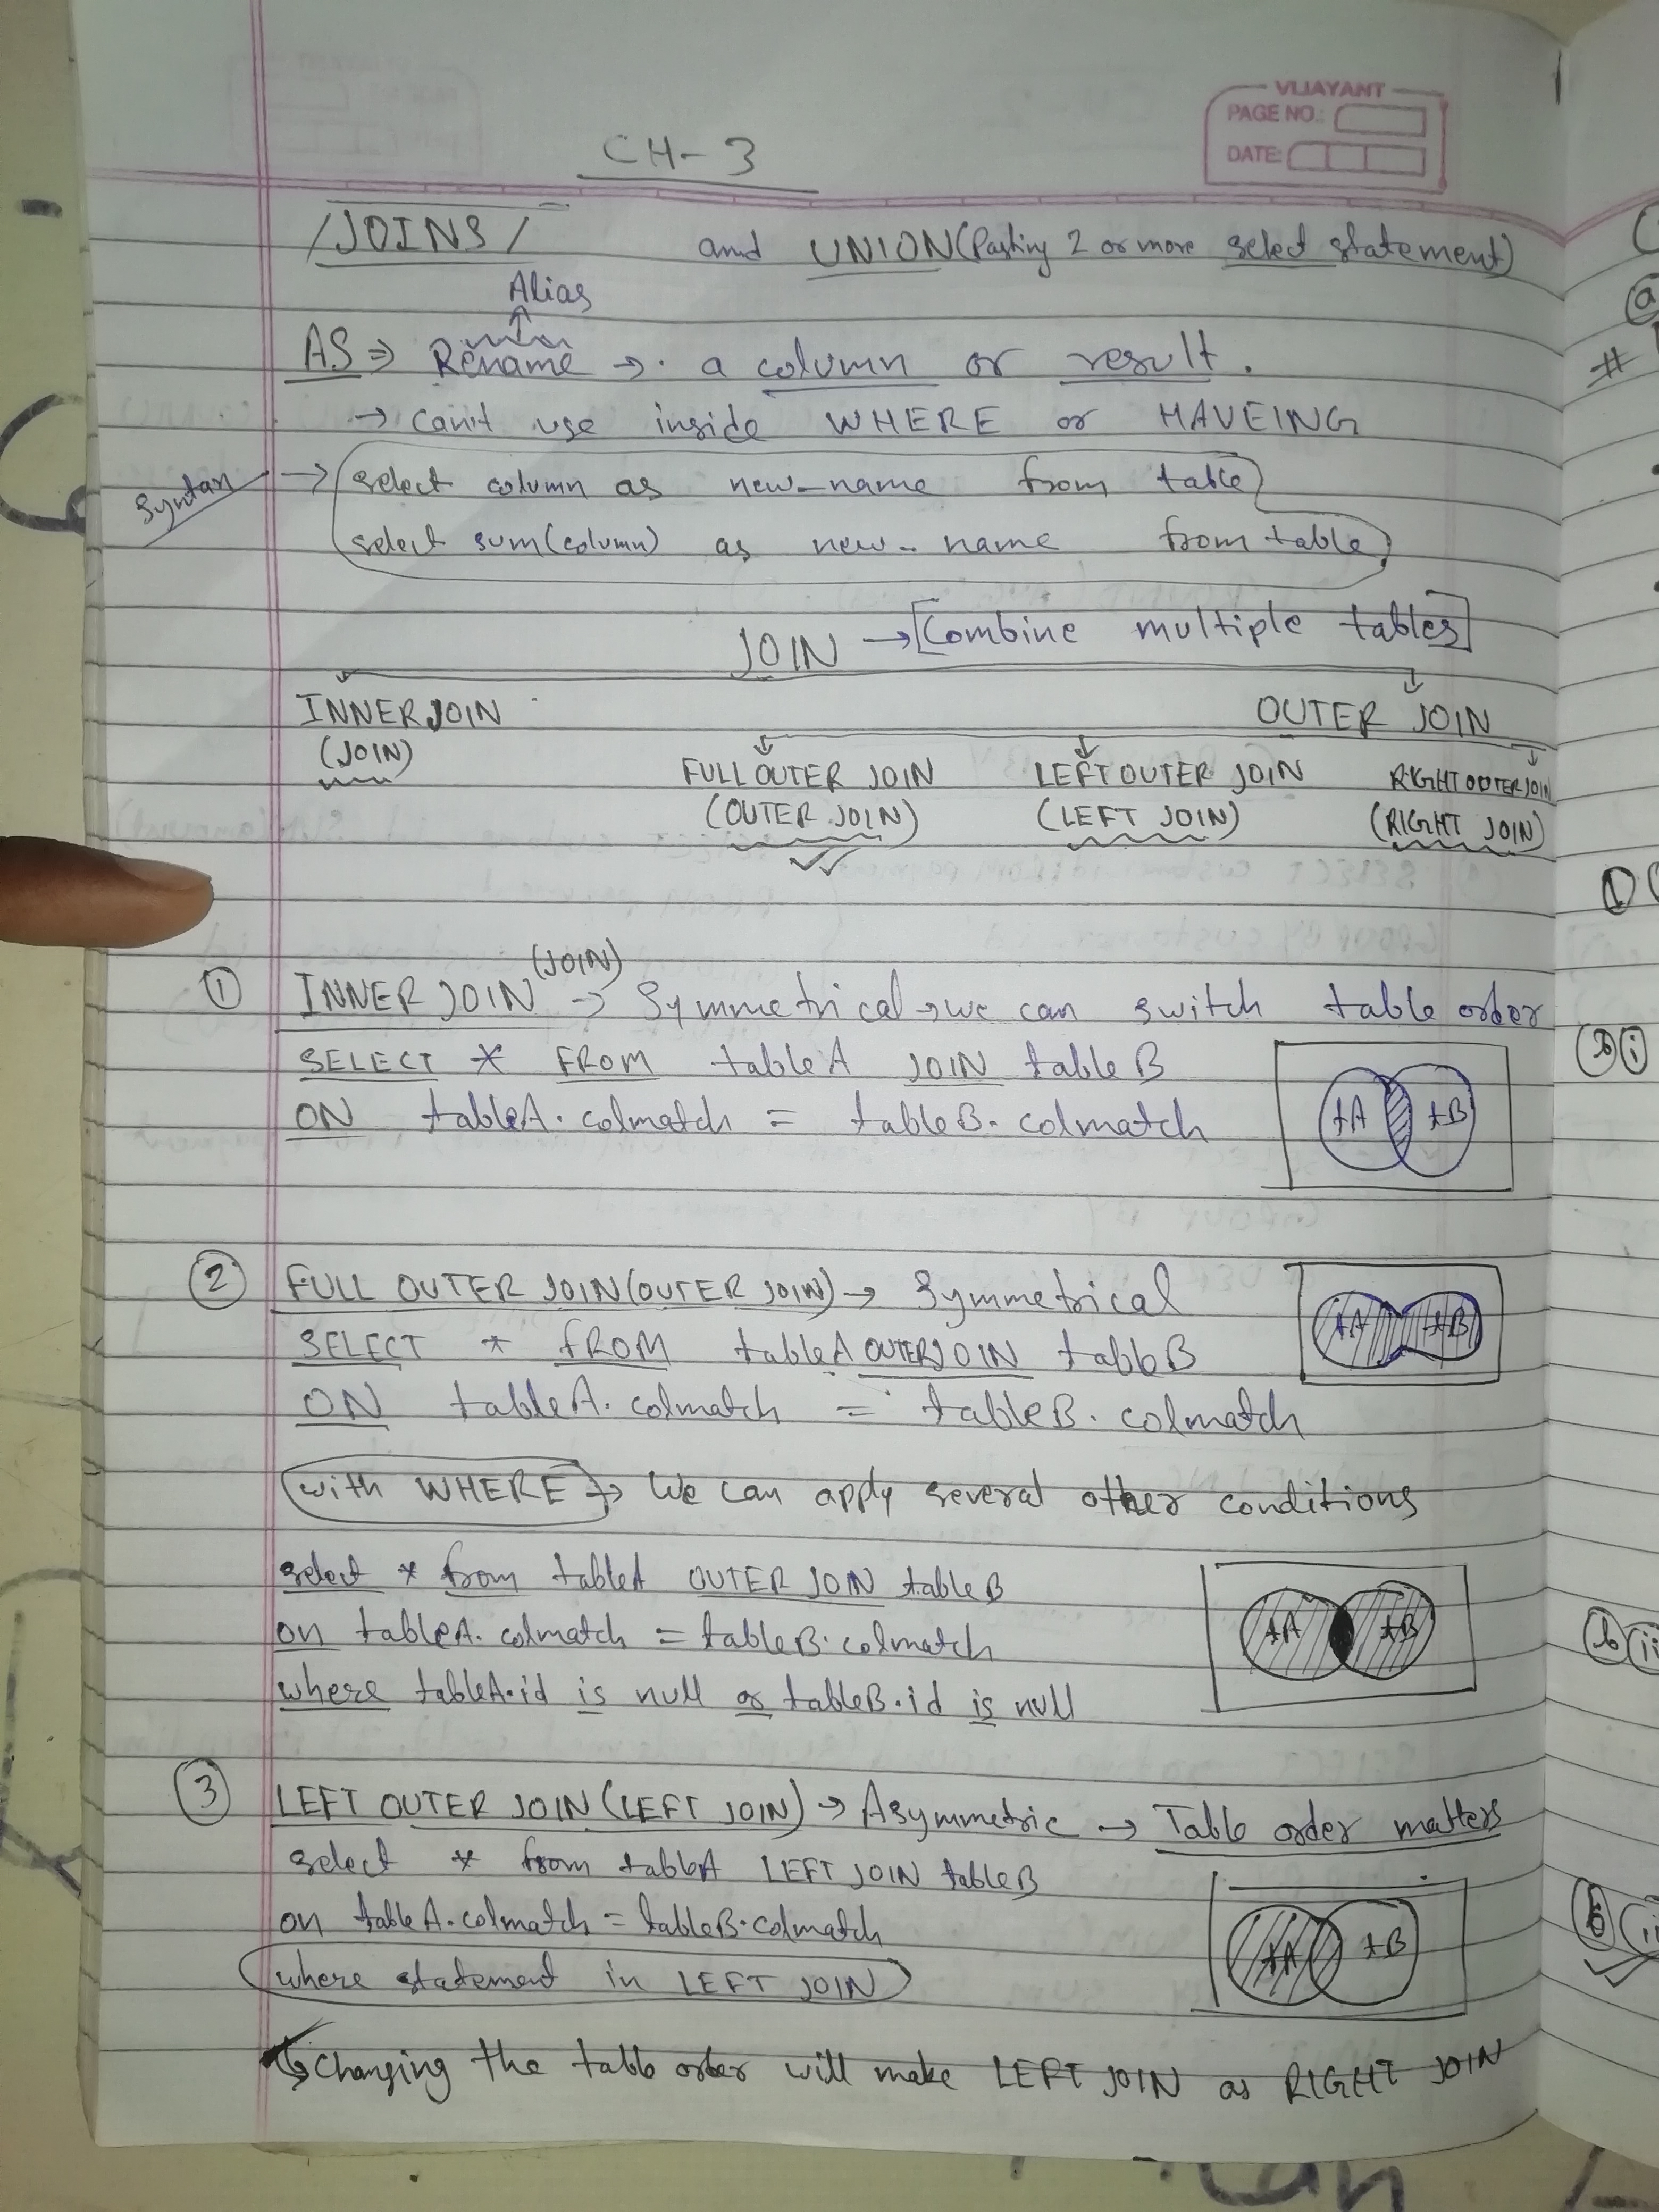 VIJAYANT
PAGE NO.:
DATE:
CH-3
/JOINS/ and UNION (Pasting 2 or more select statement)
Alias
AS ⇒ Rename → . a column or result.
→ Can't use inside WHERE or HAVEING
Syntax → select column as new_name from table
select sum(column) as new_name from table
JOIN → [Combine multiple tables]
INNER JOIN OUTER JOIN
(JOIN)
FULL OUTER JOIN LEFT OUTER JOIN RIGHT OUTER JOIN
(OUTER JOIN) (LEFT JOIN) (RIGHT JOIN)
① INNER JOIN (JOIN) → Symmetrical → we can switch table order
SELECT * FROM tableA JOIN tableB
ON tableA.colmatch = tableB.colmatch
tA tB
② FULL OUTER JOIN (OUTER JOIN) → Symmetrical
SELECT * FROM tableA OUTER JOIN tableB
tA tB
ON tableA.colmatch = tableB.colmatch
with WHERE → We can apply several other conditions
select * from tableA OUTER JOIN tableB
on tableA.colmatch = tableB.colmatch
tA tB
where tableA.id is null or tableB.id is null
③ LEFT OUTER JOIN (LEFT JOIN) → Asymmetric → Table order matters
select * from tableA LEFT JOIN tableB
on tableA.colmatch = tableB.colmatch
tA tB
where statement in LEFT JOIN
↳ Changing the table order will make LEFT JOIN as RIGHT JOIN